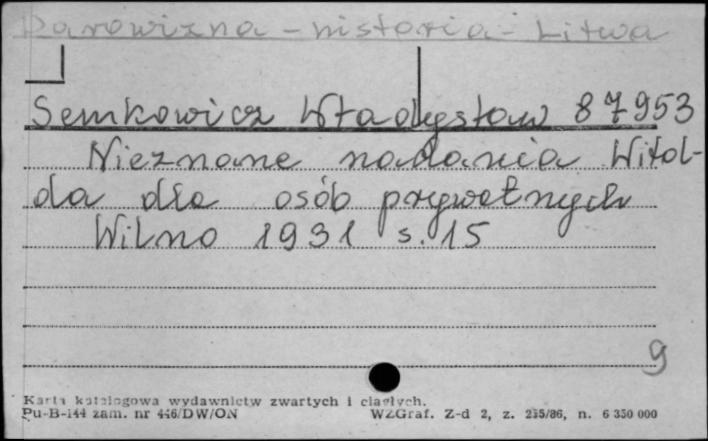 Darowizna - historia - Litwa
Semkowicz Władysław 87953
Nieznane nadania Witol-
da dla osób prywatnych
Wilno 1931 s. 15
9
Karta katalogowa wydawnictw zwartych i ciągłych.
Pu-B-144 zam. nr 446/DW/ON WZGraf. Z-d 2, z. 235/86, n. 6 350 000